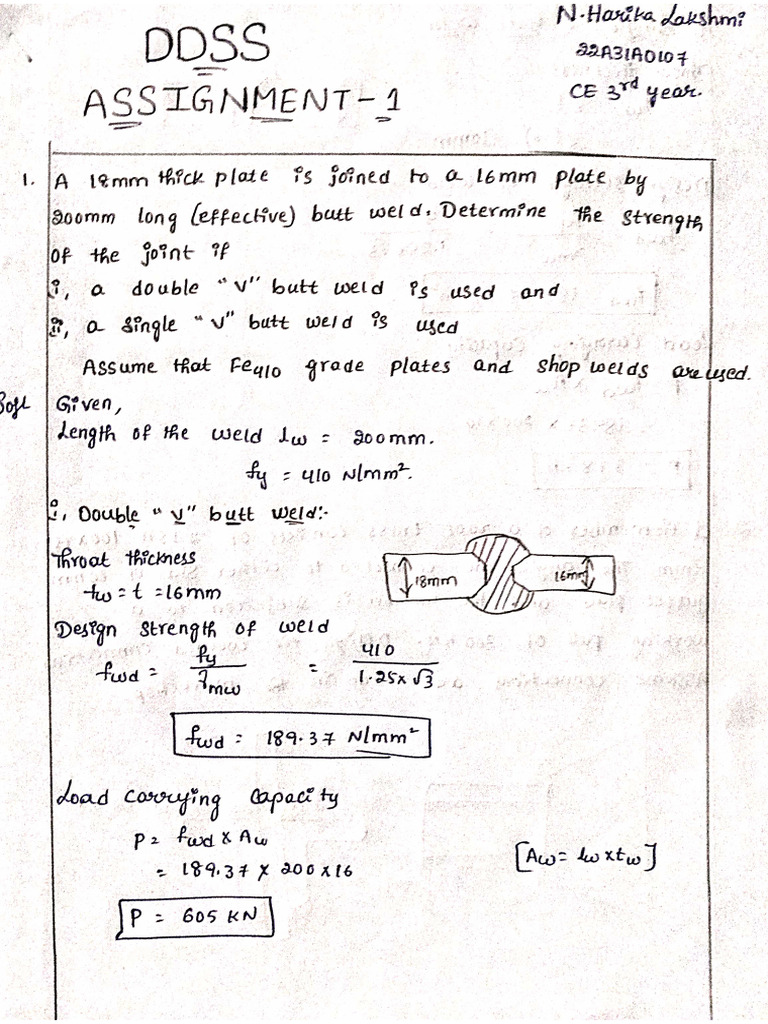 N. Harika Lakshmi
DDSS
22A31A0107
ASSIGNMENT-1
CE 3rd year.
1. A 18mm thick plate is joined to a 16mm plate by
200mm long (effective) butt weld. Determine the strength
of the joint if
i, a double "V" butt weld is used and
ii, a single "V" butt weld is used
Assume that Fe410 grade plates and shop welds are used.
Sol Given,
Length of the weld lw = 200mm.
fy = 410 N/mm².
i, Double "V" butt weld:-
Throat thickness
tw = t = 16mm
18mm 16mm
Design strength of weld
fwd = fy/γmw = 410/1.25x√3
fwd = 189.37 N/mm²
Load carrying capacity
P = fwd x Aw
[Aw = lw x tw]
= 189.37 x 200 x 16
P = 605 KN